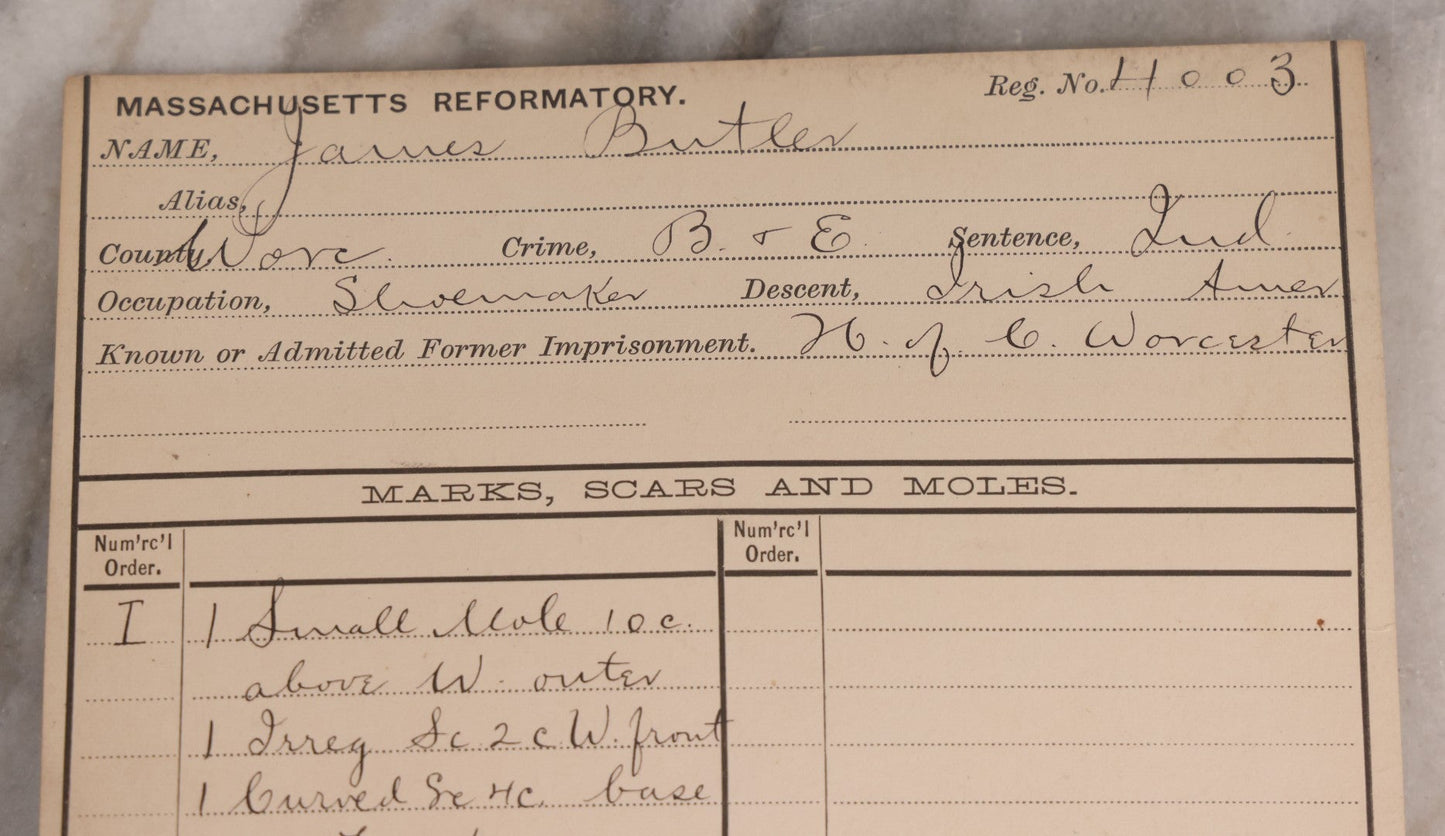 MASSACHUSETTS REFORMATORY. Reg. No. 4003
NAME, James Butler
Alias,
County, Worc. Crime, B. & E. Sentence, Ind.
Occupation, Shoemaker Descent, Irish Amer
Known or Admitted Former Imprisonment. H. of C. Worcester
MARKS, SCARS AND MOLES.
Num'rc'l Order. Num'rc'l Order.
I 1 Small Mole 10 c.
above W. outer
1 Irreg Sc 2 c W. front
1 Curved Sc 4c. base